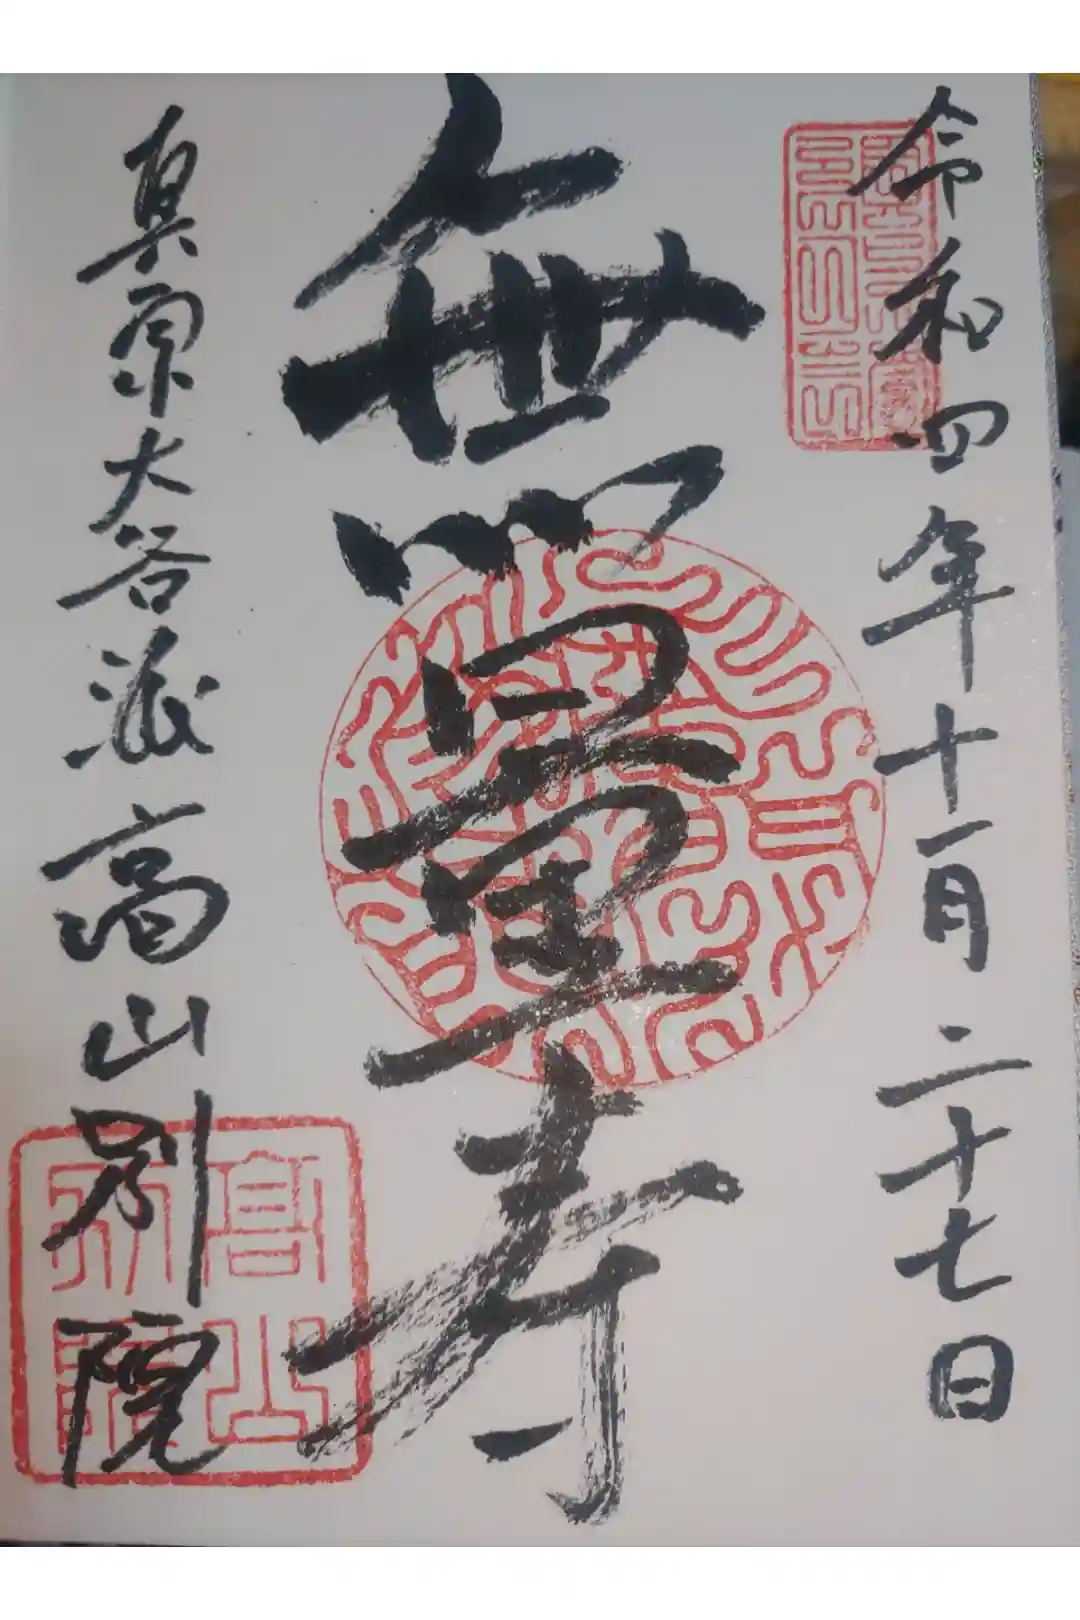 令和四年十一月二十七日
無量寿
真宗大谷派 高山別院
高山別院